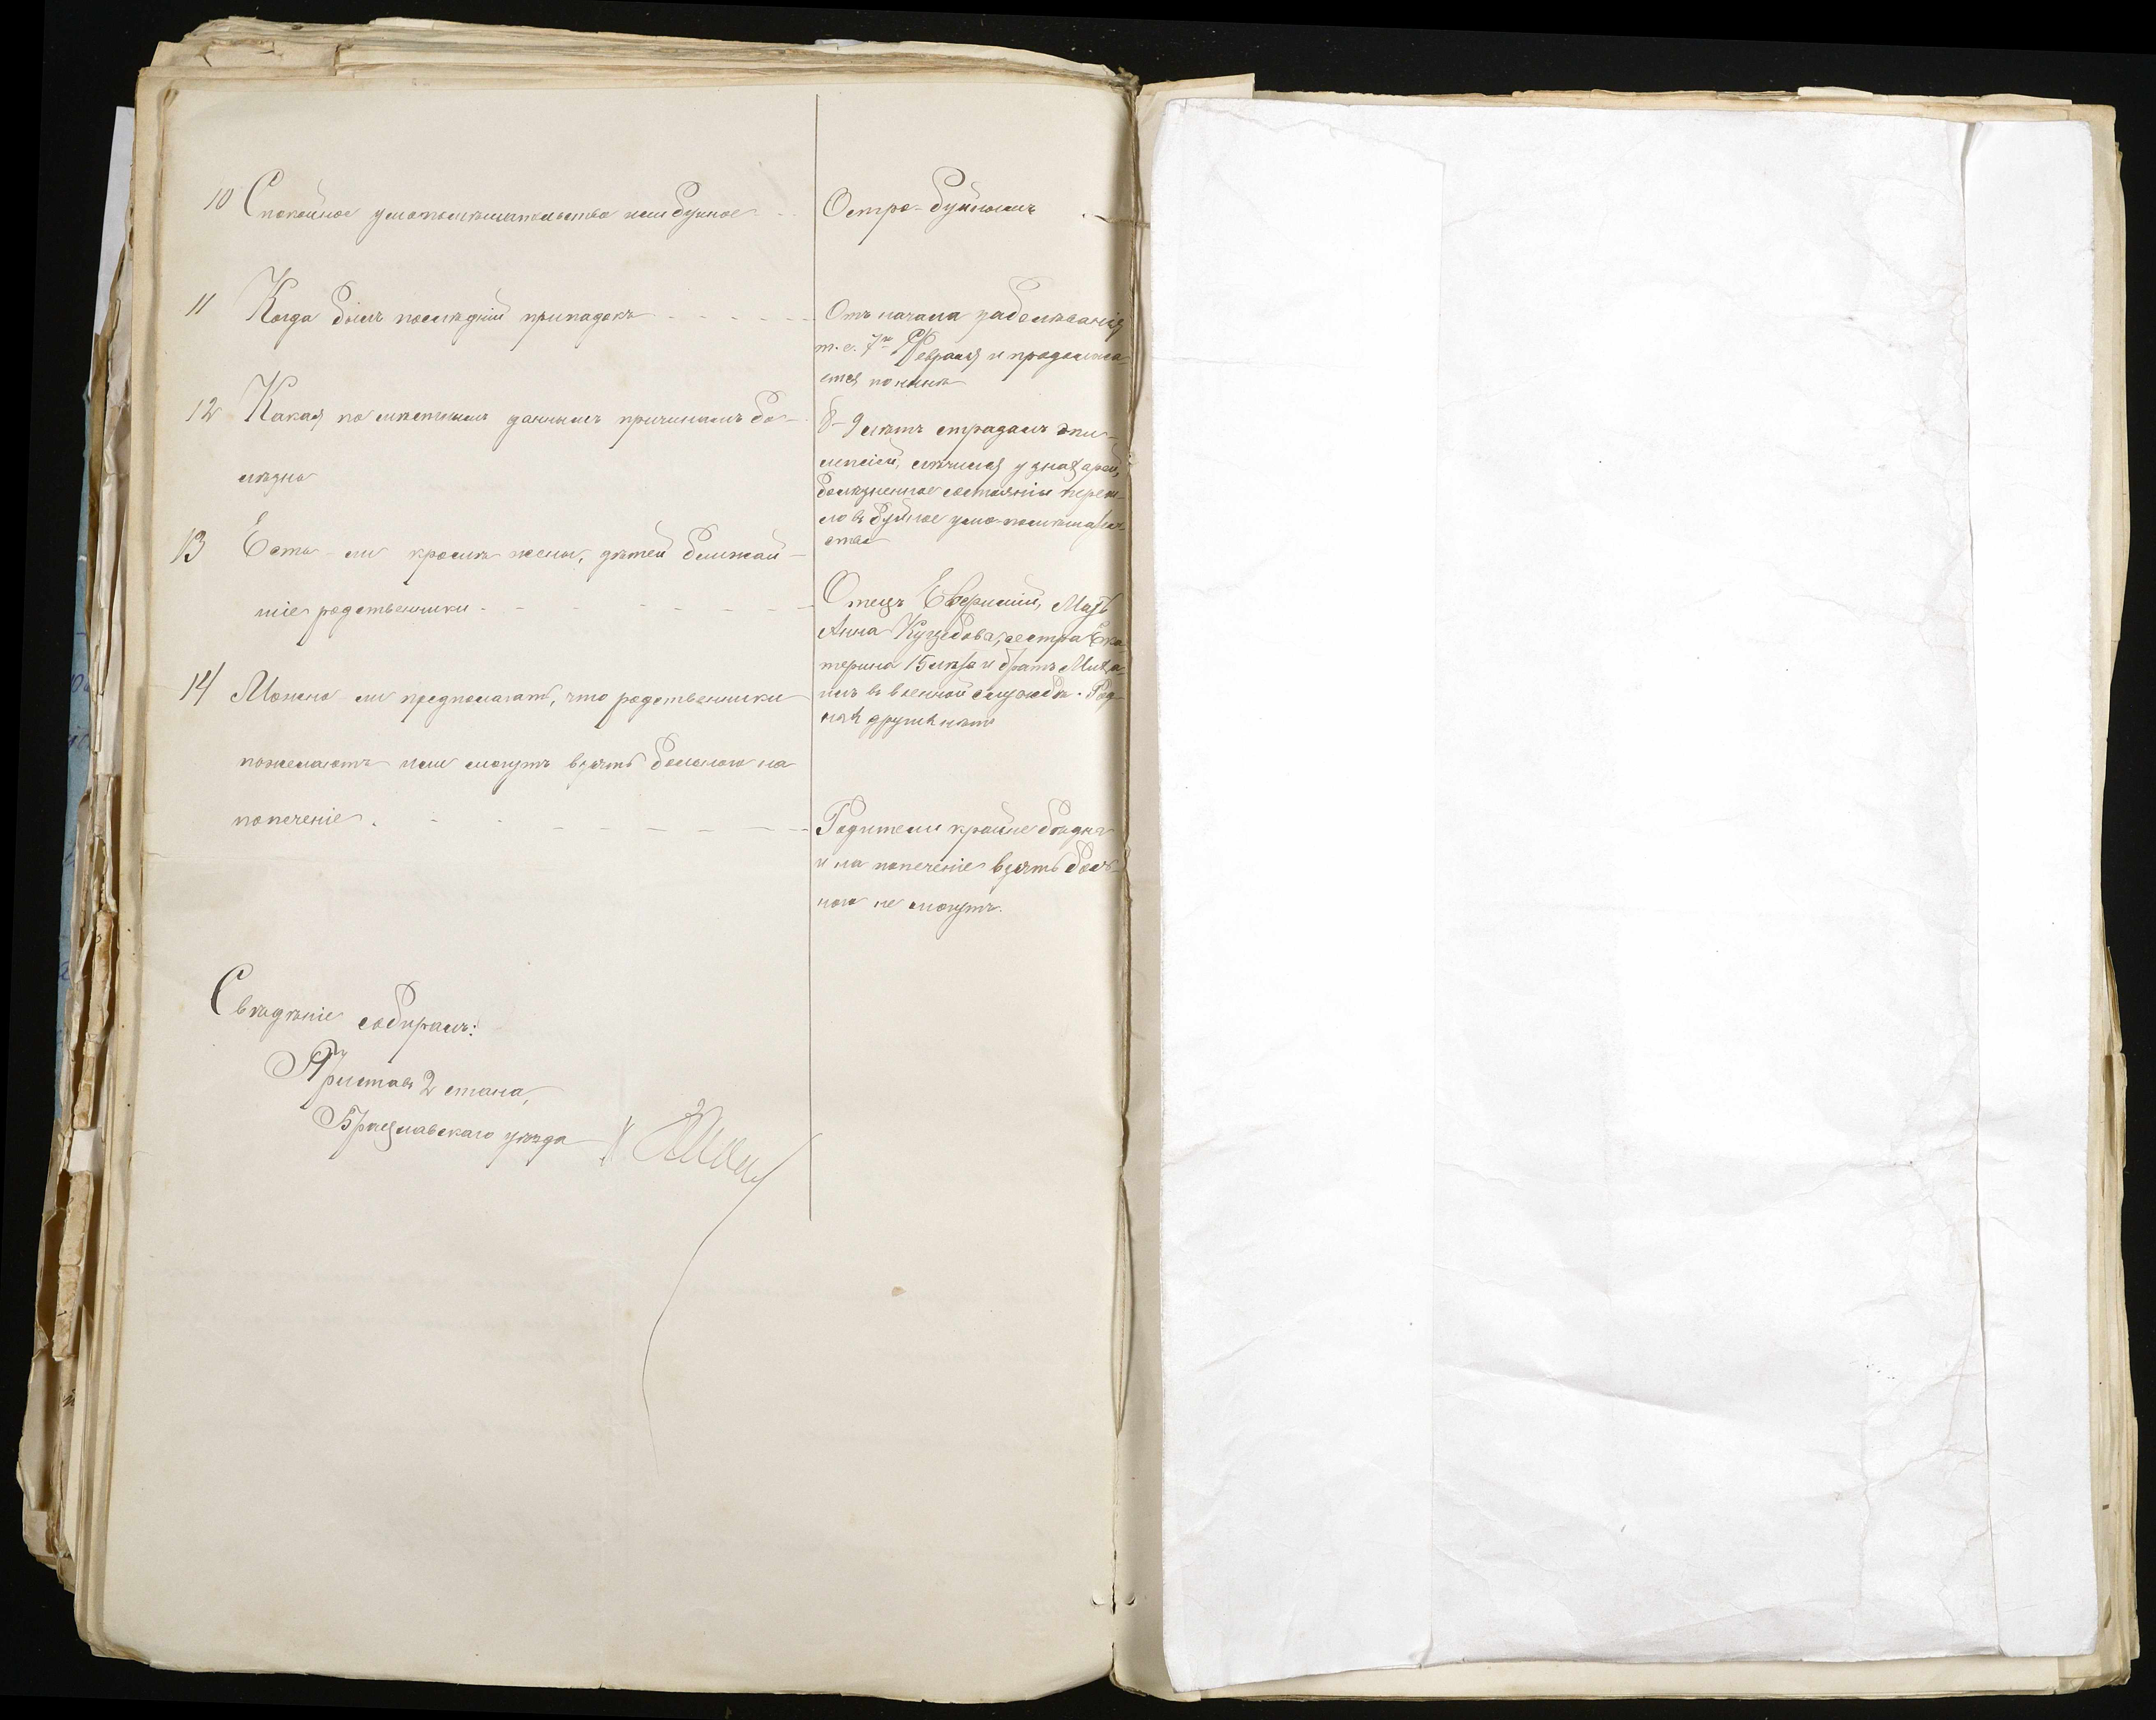 10 Спокойное умопомѣшательство или буйное
Остро-буйнымъ
11 Когда былъ послѣдній припадокъ
Отъ начала заболѣванія
т. е. 7го Февраля и продолжа-
ется по нынѣ
12 Какая по мѣстнымъ даннымъ причинамъ бо-
лѣзнь
8-9 лѣтъ страдалъ эпи-
лепсіей, лѣчился у знахарей,
болѣзненное состояніе переш-
ло въ буйное умо-помѣшатель-
ство
13 Есть-ли кромѣ жены, дѣтей ближай-
шіе родственники
Отецъ Мать
Анна сестра Ека-
терина 15 лѣтъ и братъ Миха-
илъ въ военной службѣ. Род-
ныхъ другихъ нѣтъ
14 Можно ли предполагать, что родственники
пожелаютъ или могутъ взять больного на
попеченіе.
Родители крайне бѣдны
и на попеченіе взять боль-
ного не могутъ.
Свѣдѣніе собиралъ:
Приставъ 2 стана,
Брацлавскаго уѣзда